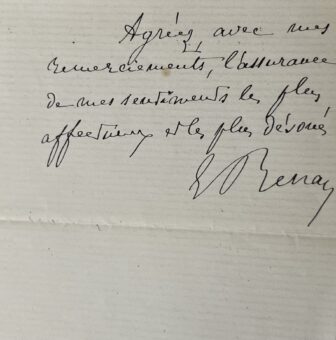 Agréez avec mes
remerciements, l'assurance
de mes sentiments les plus
affectueux et les plus dévoués
E Renan